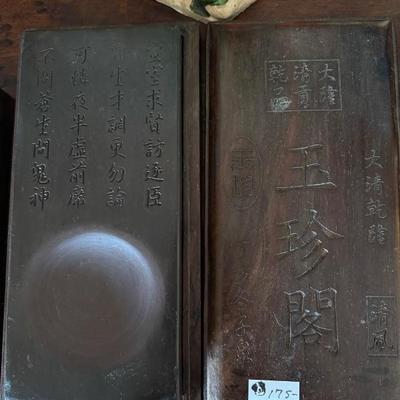 室求賢訪逐臣
生才調更勿論
可憐夜半虛前席
不問蒼生問鬼神
大清乾
隆貢品
大清乾隆
清風
玉珍閣
175-